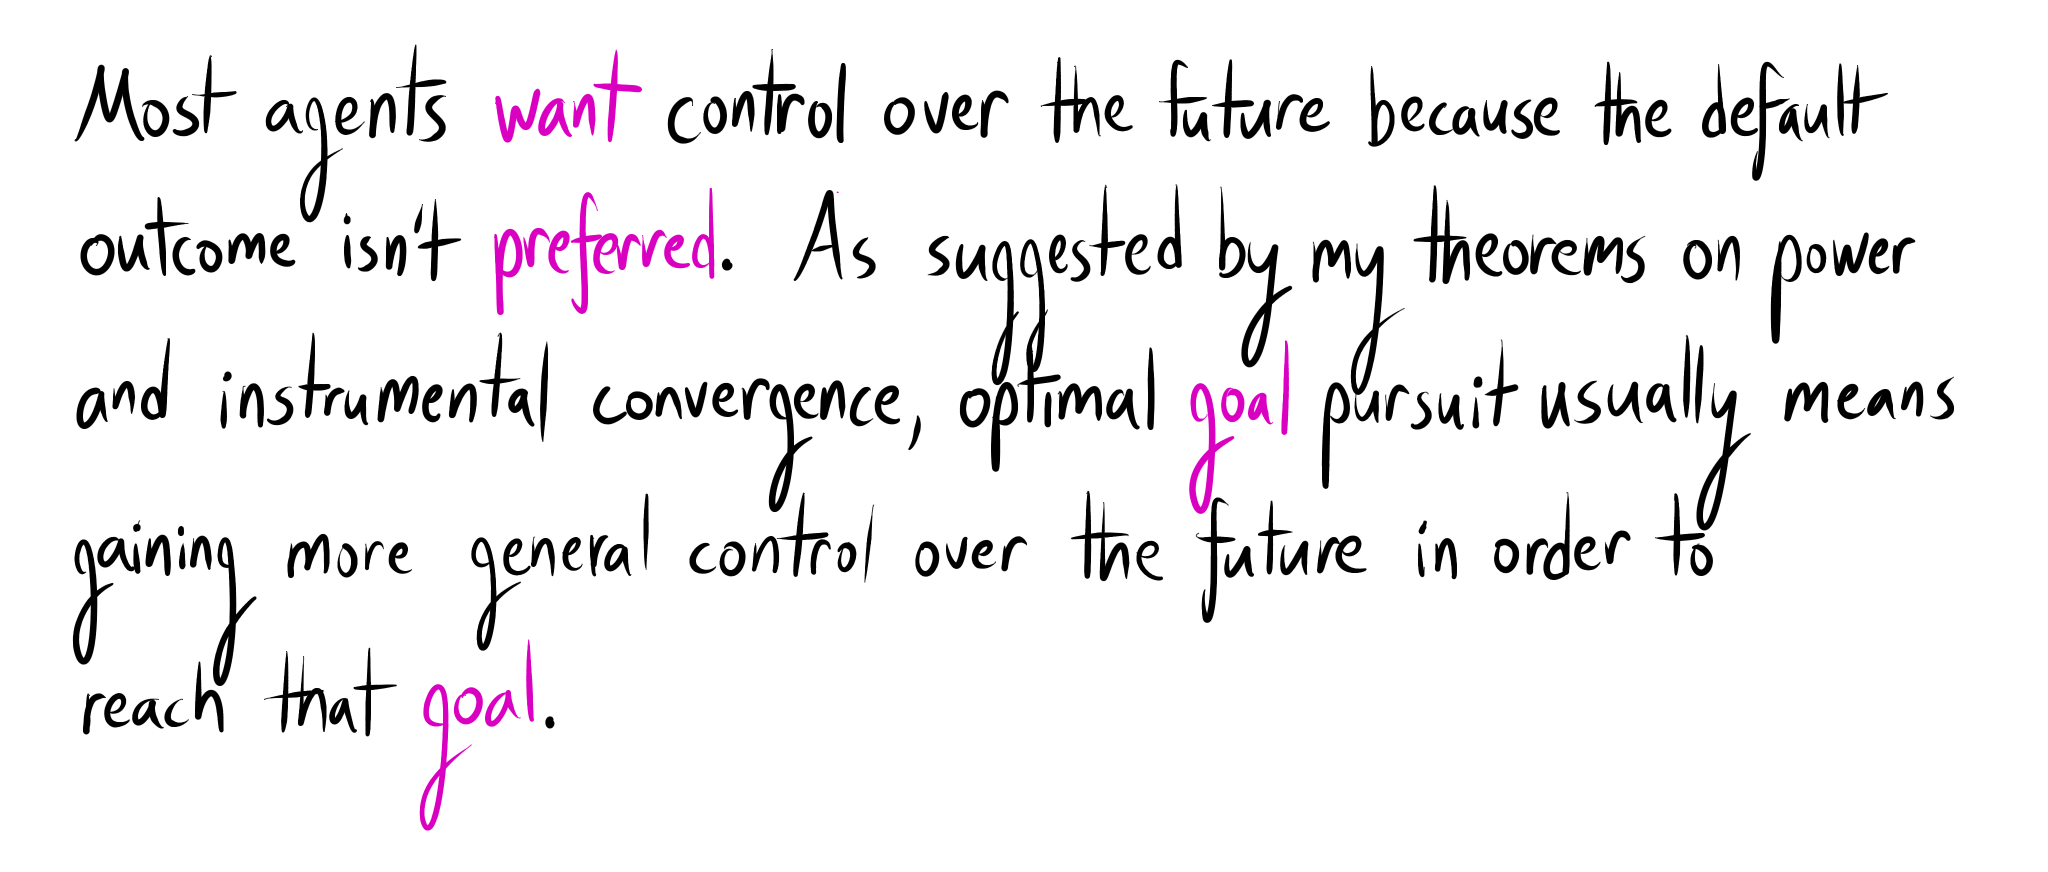 Most agents want control over the future because the default
outcome isn't preferred. As suggested by my theorems on power
and instrumental convergence, optimal goal pursuit usually means
gaining more general control over the future in order to
reach that goal.